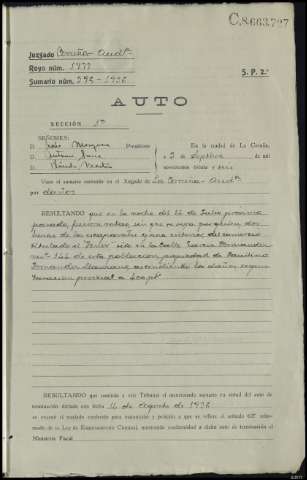 C.8.663.727
Juzgado Coruña-Aud.ª
Rollo núm. 1977
Sumario núm. 292-1932 S. P. 2.ª
AUTO
SECCIÓN 1ª
SEÑORES:
D. Presidente En la ciudad de La Coruña,
D. a 3 de Septbre de mil
D. novecientos treinta y
Visto el sumario instruido en el Juzgado de La Coruña-Aud.ª
por daños
RESULTANDO que en la noche del 26 de Julio próximo
pasado, fueron rotas, sin que se sepa por quien, dos
lunas de los escaparates y una interior del comercio
titulado el sito en la Calle García Hernández
núm. 166 de esta población propiedad de Faustino
Fernández ascendiendo los daños según
tasación pericial a
RESULTANDO que remitido a este Tribunal el mencionado sumario en virtud del auto de
terminación dictado con fecha 16 de Agosto de 1932
se evacuó el traslado conferido para instrucción y petición a que se refiere el artículo 627 refor-
mado de la Ley de Enjuiciamiento Criminal, mostrando conformidad a dicho auto de terminación el
Ministerio Fiscal